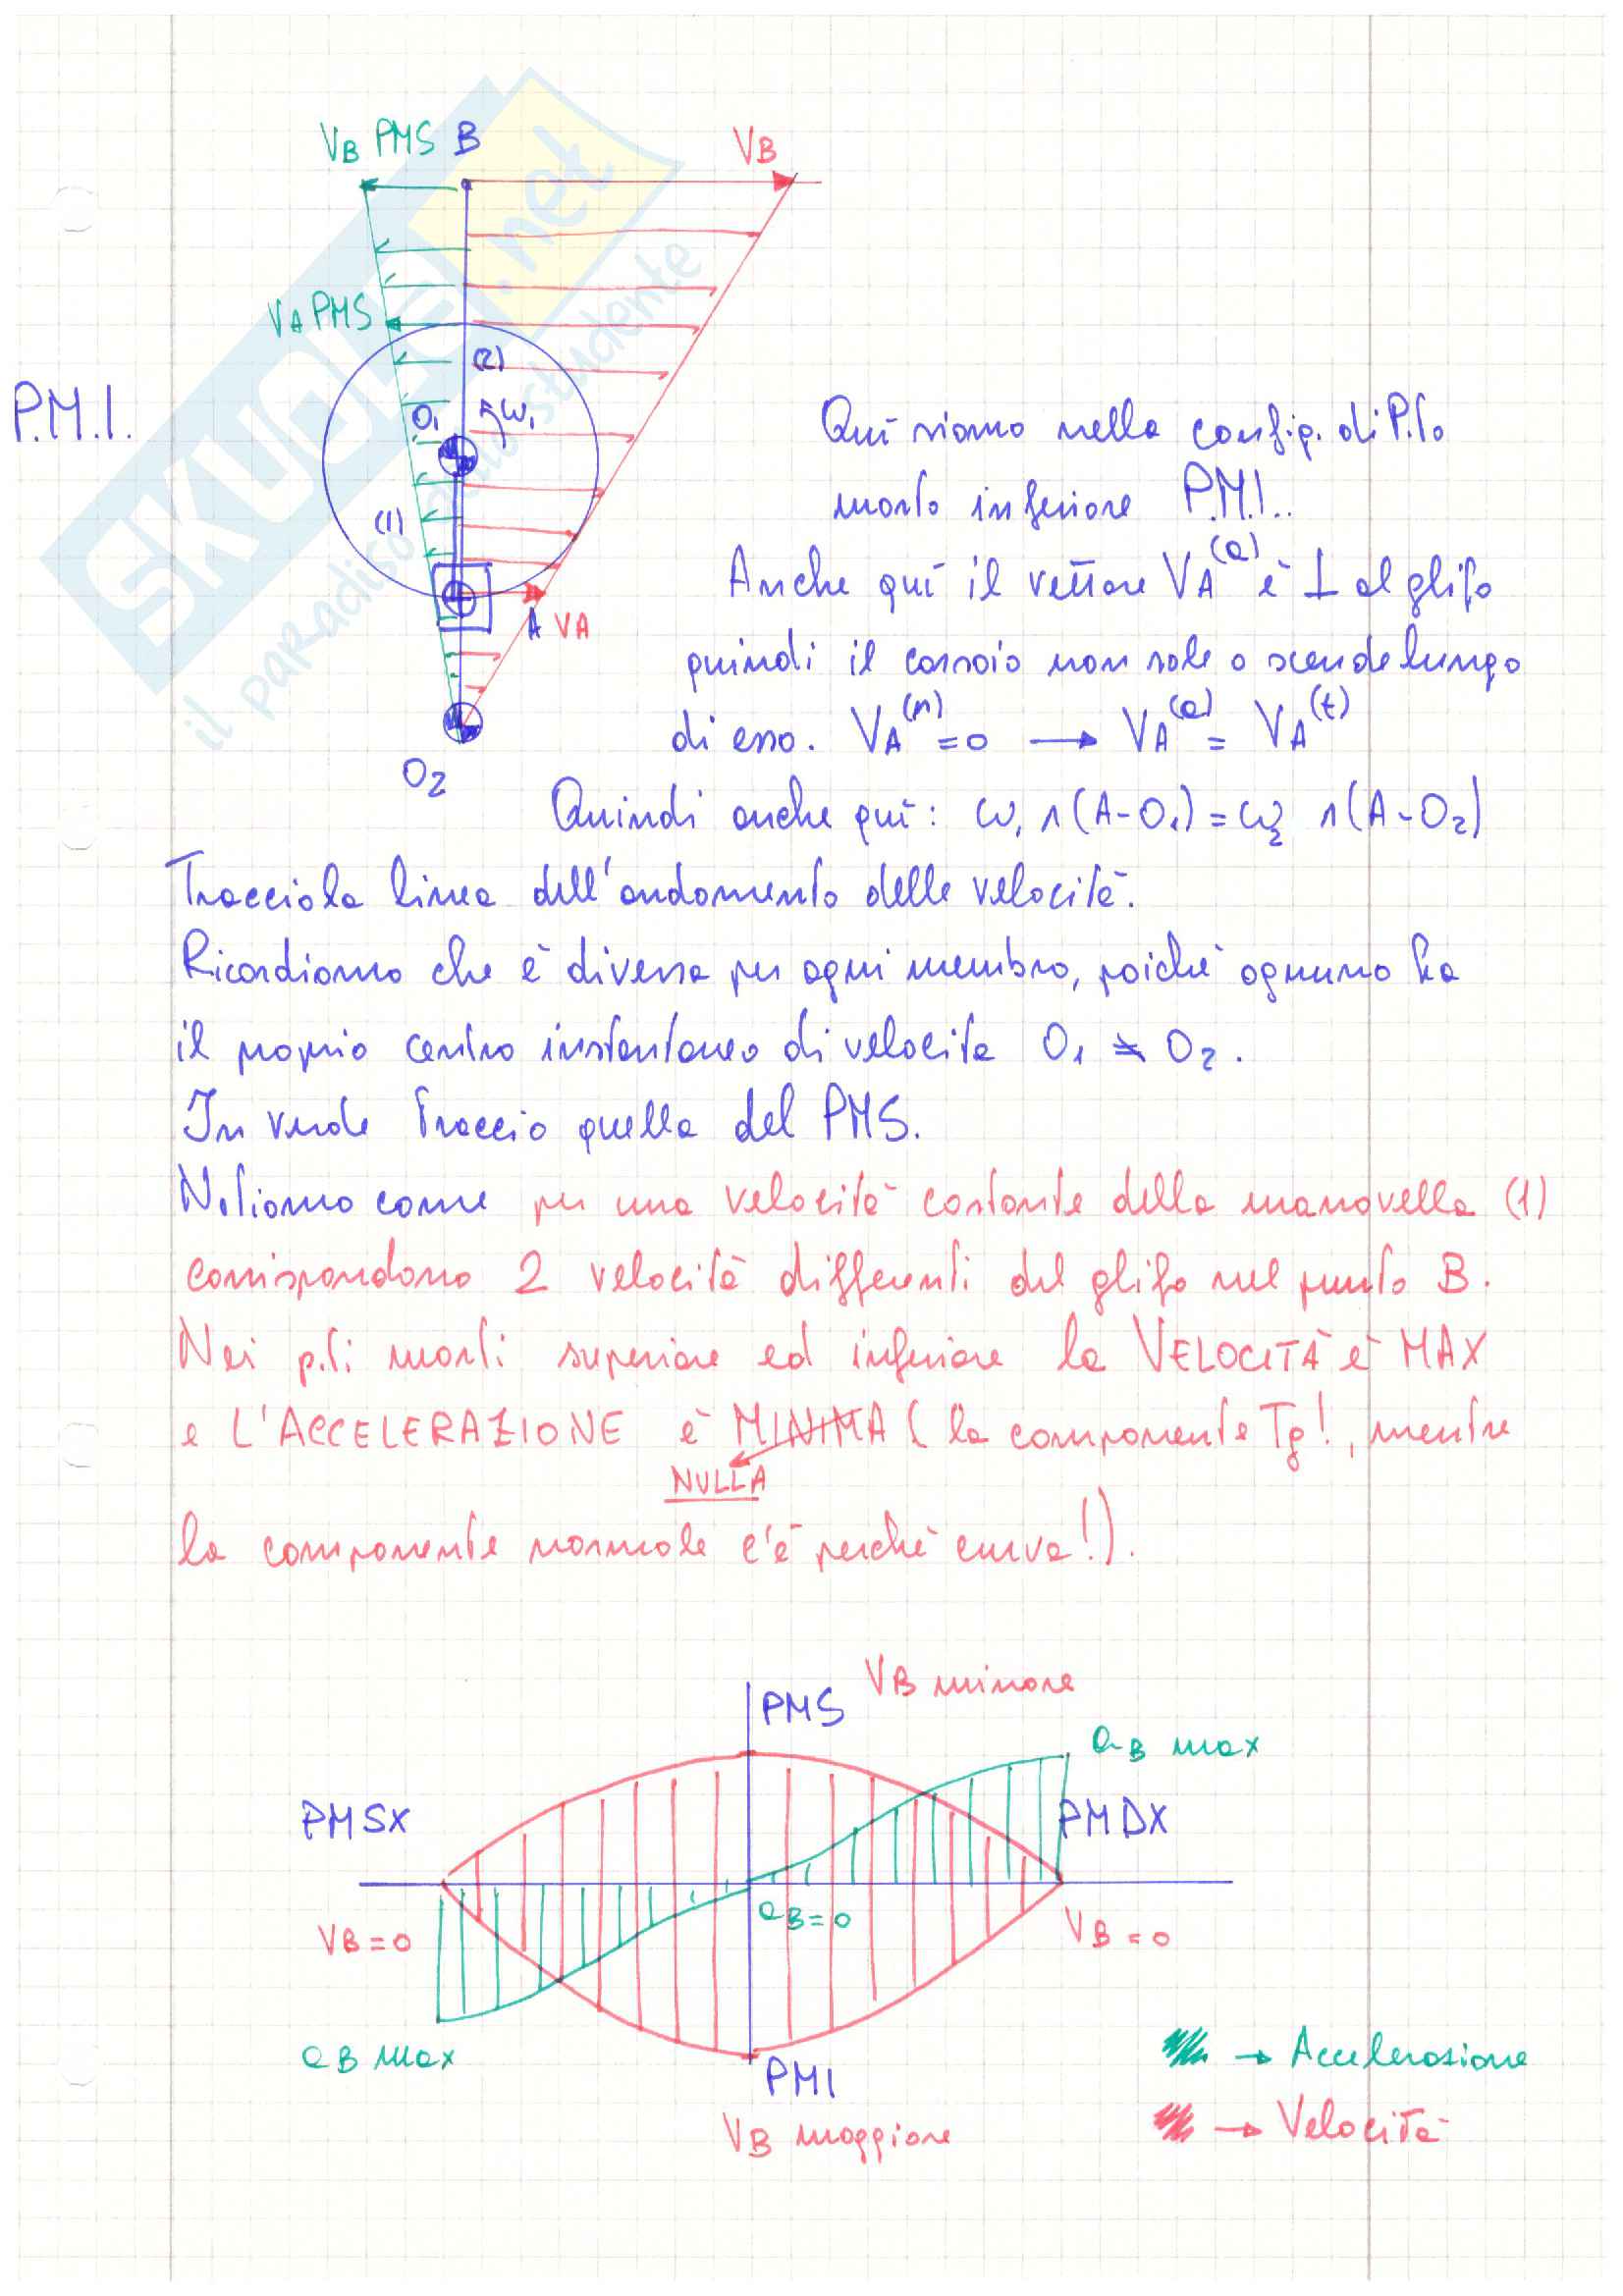 VB PMS B VB
VA PMS
(2)
P.M.I.
O1 ω1
(1)
A VA
O2
Qui siamo nella config. di P.to
morto inferiore P.M.I..
Anche quì il vettore VA(a) è ⊥ al glifo
quindi il corsoio non sale o scende lungo
di esso. VA(r)=0 → VA(a) = VA(t)
Quindi anche quì: ω1 ∧ (A-O1) = ω2 ∧ (A-O2)
Traccio la linea dell'andamento delle velocità.
Ricordiamo che è diversa per ogni membro, poichè ognuno ha
il proprio centro instantaneo di velocita O1 ≠ O2.
In verde traccio quella del PMS.
Notiamo come per una velocità costante della manovella (1)
corrispondono 2 velocità differenti del glifo nel punto B.
Nei p.ti morti superiore ed inferiore la VELOCITÀ è MAX
e L'ACCELERAZIONE è MINIMA ( la componente Tg!, mentre
NULLA
la componente normale c'è perchè curva!).
VB minore
PMS
aB max
PMSX
PMDX
aB=0
VB=0
VB=0
aB max
PMI
VB maggiore
→ Accelerazione
→ Velocità
SKUOLA.net
il paradiso dello studente